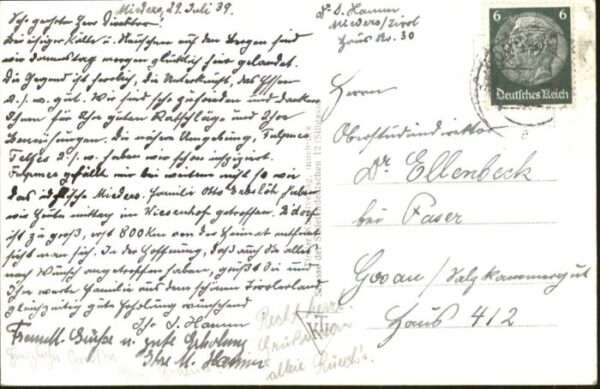 Mieders, 29. Juli 39.
Sehr geehrter Herr Direktor!
Bei eisiger Kälte u. Neuschnee auf den Bergen sind
wir donnerstag morgen glücklich hier gelandet.
Die Gegend ist herrlich, die Unterkunft, das Essen
u.s.w. gut. Wir sind sehr zufrieden und danken
Ihnen für Ihre guten Ratschläge und Ihre
Bemühungen. Die nähere Umgebung, Fulpmes,
Telfes u.s.w. haben wir schon
Fulpmes gefällt mir bei weitem nicht so wie
das idyllische Mieders. Familie Otto haben
wir heute mittag im Wiesenhof getroffen.
ist zu groß, erst 800 km von der Heimat entfernt
sieht man sich. In der Hoffnung, daß auch Sie alles
nach Wunsch angetroffen haben, grüßt Sie und
Ihre werte Familie aus dem schönen Tirolerland,
gleichzeitig gute Erholung wünschend
Ihr D. Hamm
Freundl. Grüße u. gute Erholung
Ihre M. Hamm
Dr. D. Hamm
Mieders/Tirol
Haus Nr. 30
6 6
Deutsches Reich
Herrn
Oberstudiendirektor
Dr. Ellenbeck
bei Faser
Gosau / Salzkammergut
Haus 412